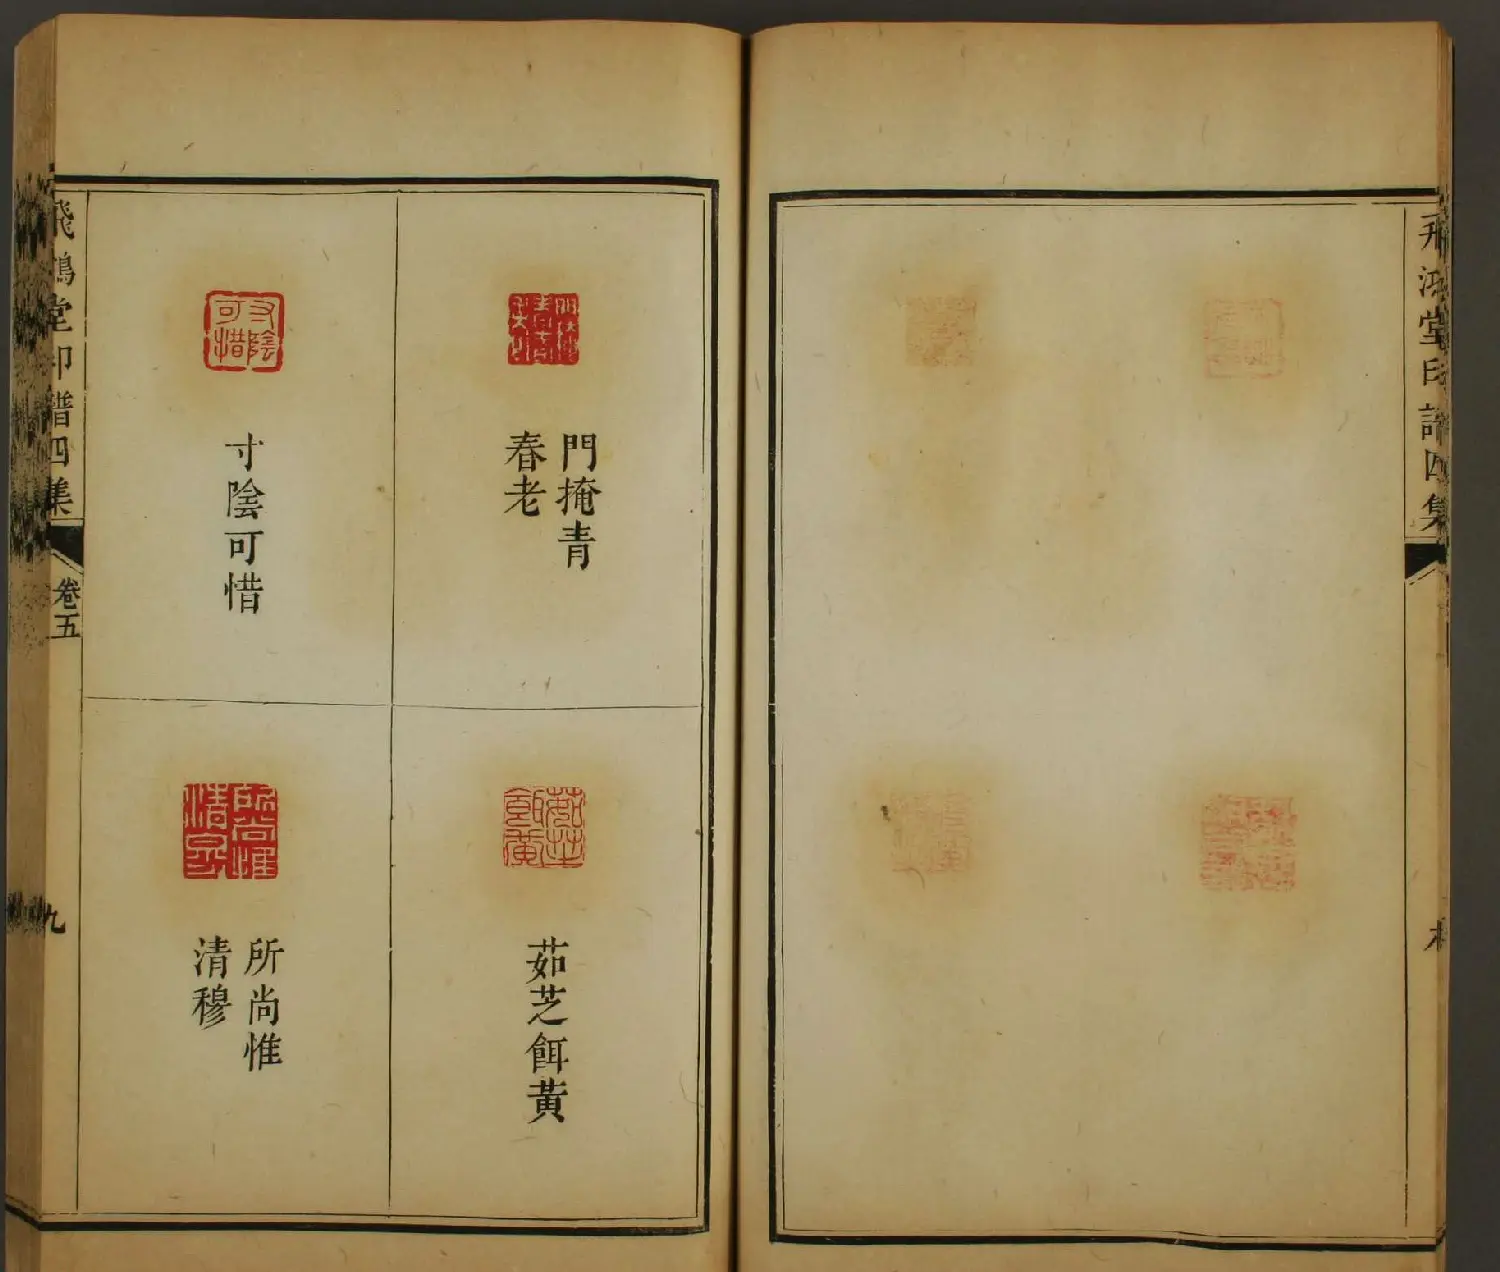 門掩青
春老
寸陰可惜
茹芝餌黃
所尚惟
清穆
飛鴻堂印譜四集
卷五
九
鴻堂印譜四集